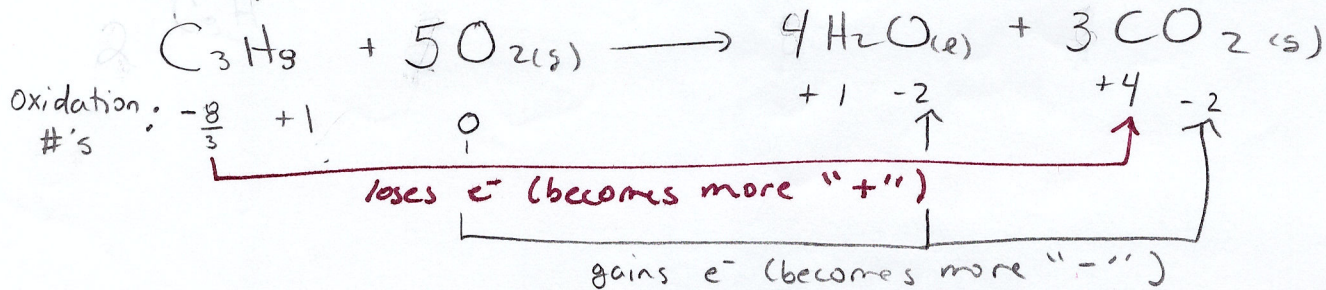 C3H8 + 5O2(g) → 4H2O(l) + 3CO2(g)
Oxidation #'s : -8/3 +1 0 +1 -2 +4 -2
loses e- (becomes more "+")
gains e- (becomes more "-")